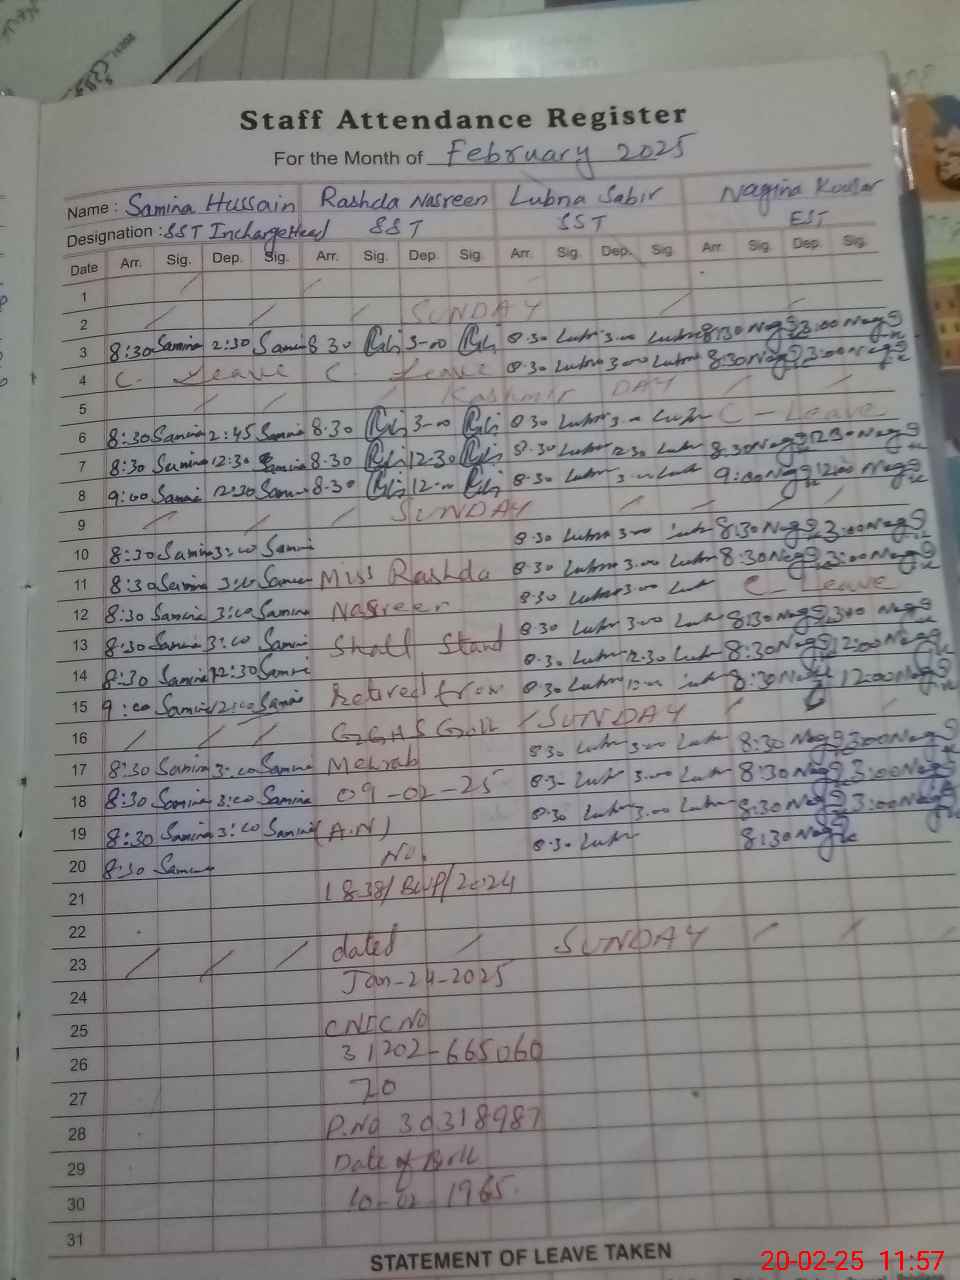 Staff Attendance Register
For the Month of February 2025
Name : Samina Hussain Rashda Nasreen Lubna Sabir Nagina Kousar
Designation : SST Incharge Head SST SST EST
Date Arr. Sig. Dep. Sig. Arr. Sig. Dep. Sig. Arr. Sig. Dep. Sig. Arr. Sig. Dep. Sig.
1
2 SUNDAY
3 8:30 Samina 2:30 Samina 8.30 3-00 8.30 Lubna 3.00 Lubna 8:30 Nag 3:00 Nag
4 C. Leave C. Leave 8.30 Lubna 3.00 Lubna 8:30 Nag 3:00 Nag
5 Kashmir DAY
6 8:30 Samina 2:45 Samina 8.30 3-00 8.30 Lubna 3.00 Lubna C - Leave
7 8:30 Samina 12:30 Samina 8.30 12.30 8.30 Lubna 12.30 Lubna 8:30 Nag 12:30 Nag
8 9:00 Samina 12:30 Samina 8.30 12.00 8.30 Lubna Lubna 9:00 Nag 12:00 Nag
9 SUNDAY
10 8:30 Samina 3:00 Samina 8.30 Lubna 3.00 Lubna 8:30 Nag 3:00 Nag
11 8:30 Samina 3:00 Samina Miss Rashda 8.30 Lubna 3.00 Lubna 8:30 Nag 3:00 Nag
12 8:30 Samina 3:00 Samina Nasreen 8.30 Lubna 3.00 Lubna C - Leave
13 8:30 Samina 3:00 Samina Shall Stand 8.30 Lubna 3.00 Lubna 8:30 Nag 3:00 Nag
14 8:30 Samina 12:30 Samina 8.30 Lubna 12.30 Lubna 8:30 Nag 12:00 Nag
15 9:00 Samina 12:00 Samina Retired from 8.30 Lubna 12.00 Lubna 8:30 Nag 12:00 Nag
16 GGHS Goth SUNDAY
17 8:30 Samina 3:00 Samina Mehrab 8.30 Lubna 3.00 Lubna 8:30 Nag 3:00 Nag
18 8:30 Samina 3:00 Samina 09-02-25 8.30 Lubna 3.00 Lubna 8:30 Nag 3:00 Nag
19 8:30 Samina 3:00 Samina (A.N) 8.30 Lubna 3.00 Lubna 8:30 Nag 3:00 Nag
20 8:30 Samina No. 8.30 Lubna 8:30 Nag
21 1838/BWP/2024
22
23 dated SUNDAY
24 Jan-24-2025
25 CNIC NO
26 31202-665060
27 70
28 P.No 30318987
29 Date of Birth
30 10-02-1965
31
STATEMENT OF LEAVE TAKEN
20-02-25 11:57